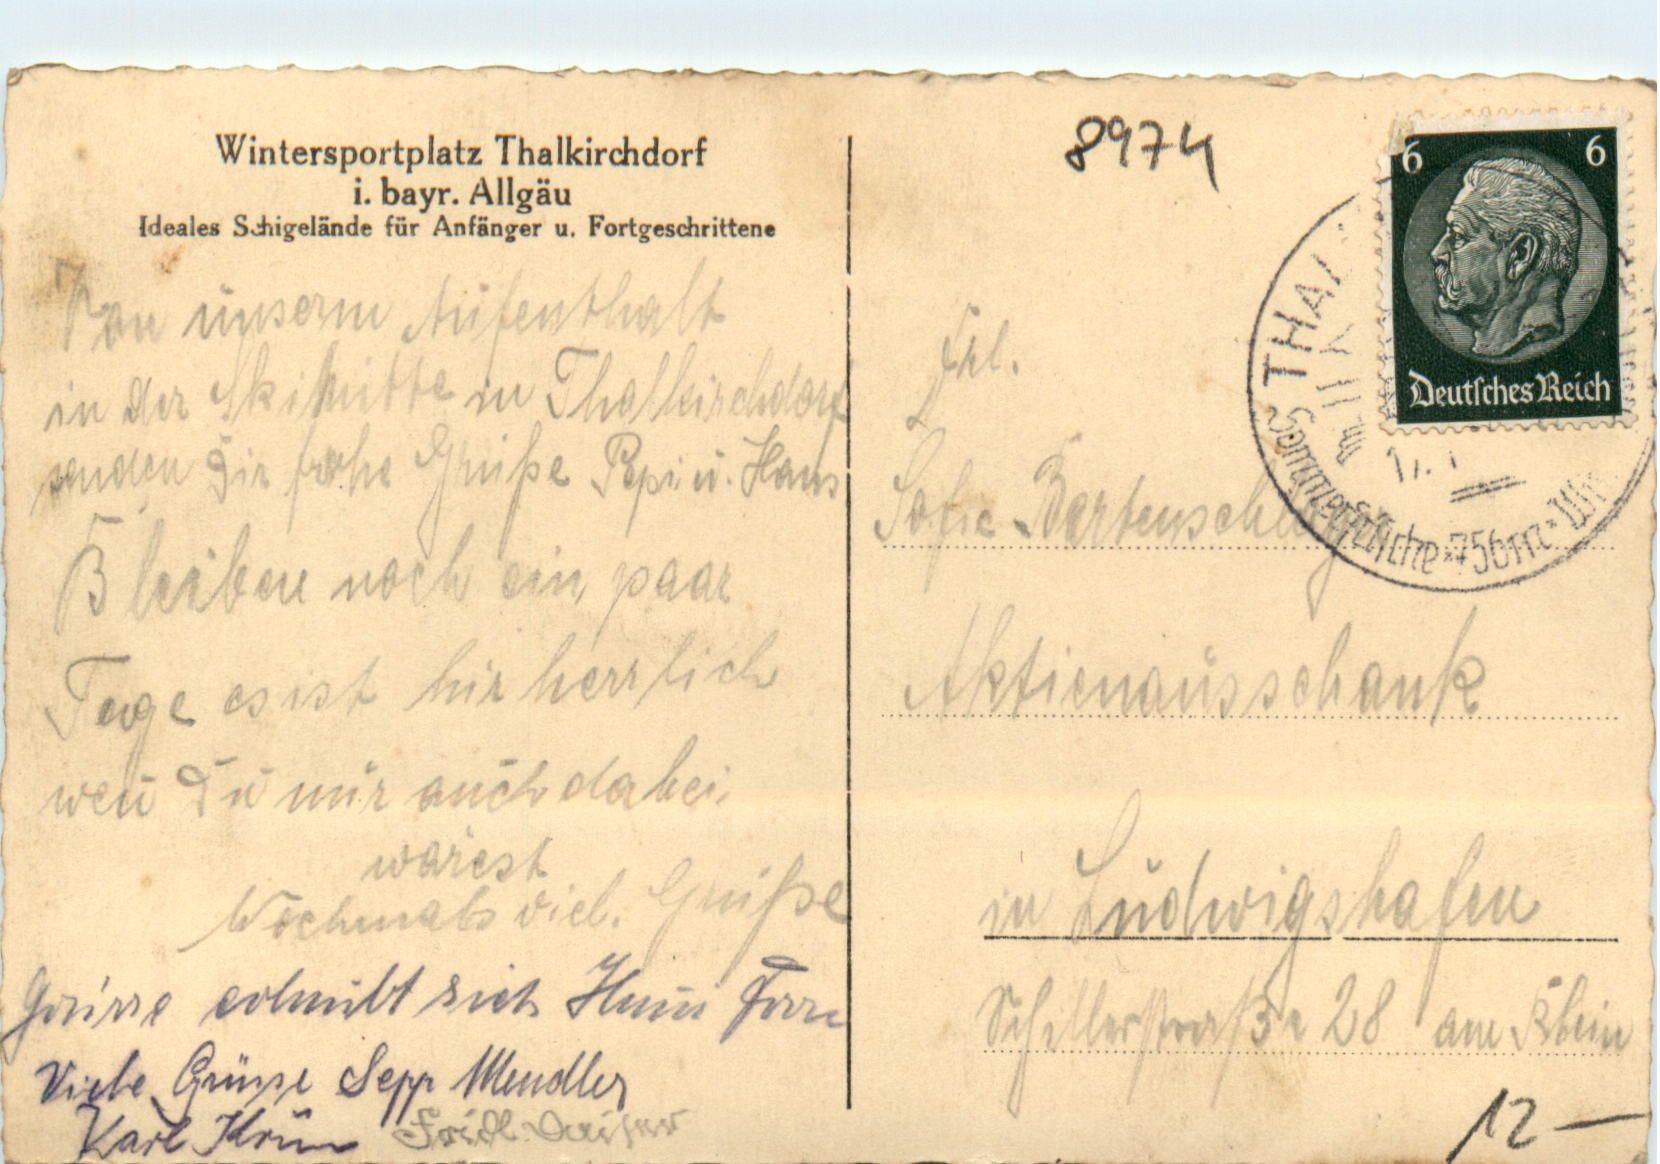 Wintersportplatz Thalkirchdorf
i. bayr. Allgäu
Ideales Schigelände für Anfänger u. Fortgeschrittene
Von unserm Aufenthalt
in der Skihütte in Thalkirchdorf
senden Dir frohe Grüße Pepi u. Hans
Bleiben noch ein paar
Tage es ist hir herrlich
wen Du nur auch dabei
wärest
Nochmals viel. Grüße
Grüsse sich
Viele Grüsse Sepp Mendler
Karl
8974
6 6
Deutsches Reich
THAL
Sommerfrische 756m Win
Frl.
Sofie
Aktienausschank
in Ludwigshafen
Schillerstraße 28 am Rhein
12 —